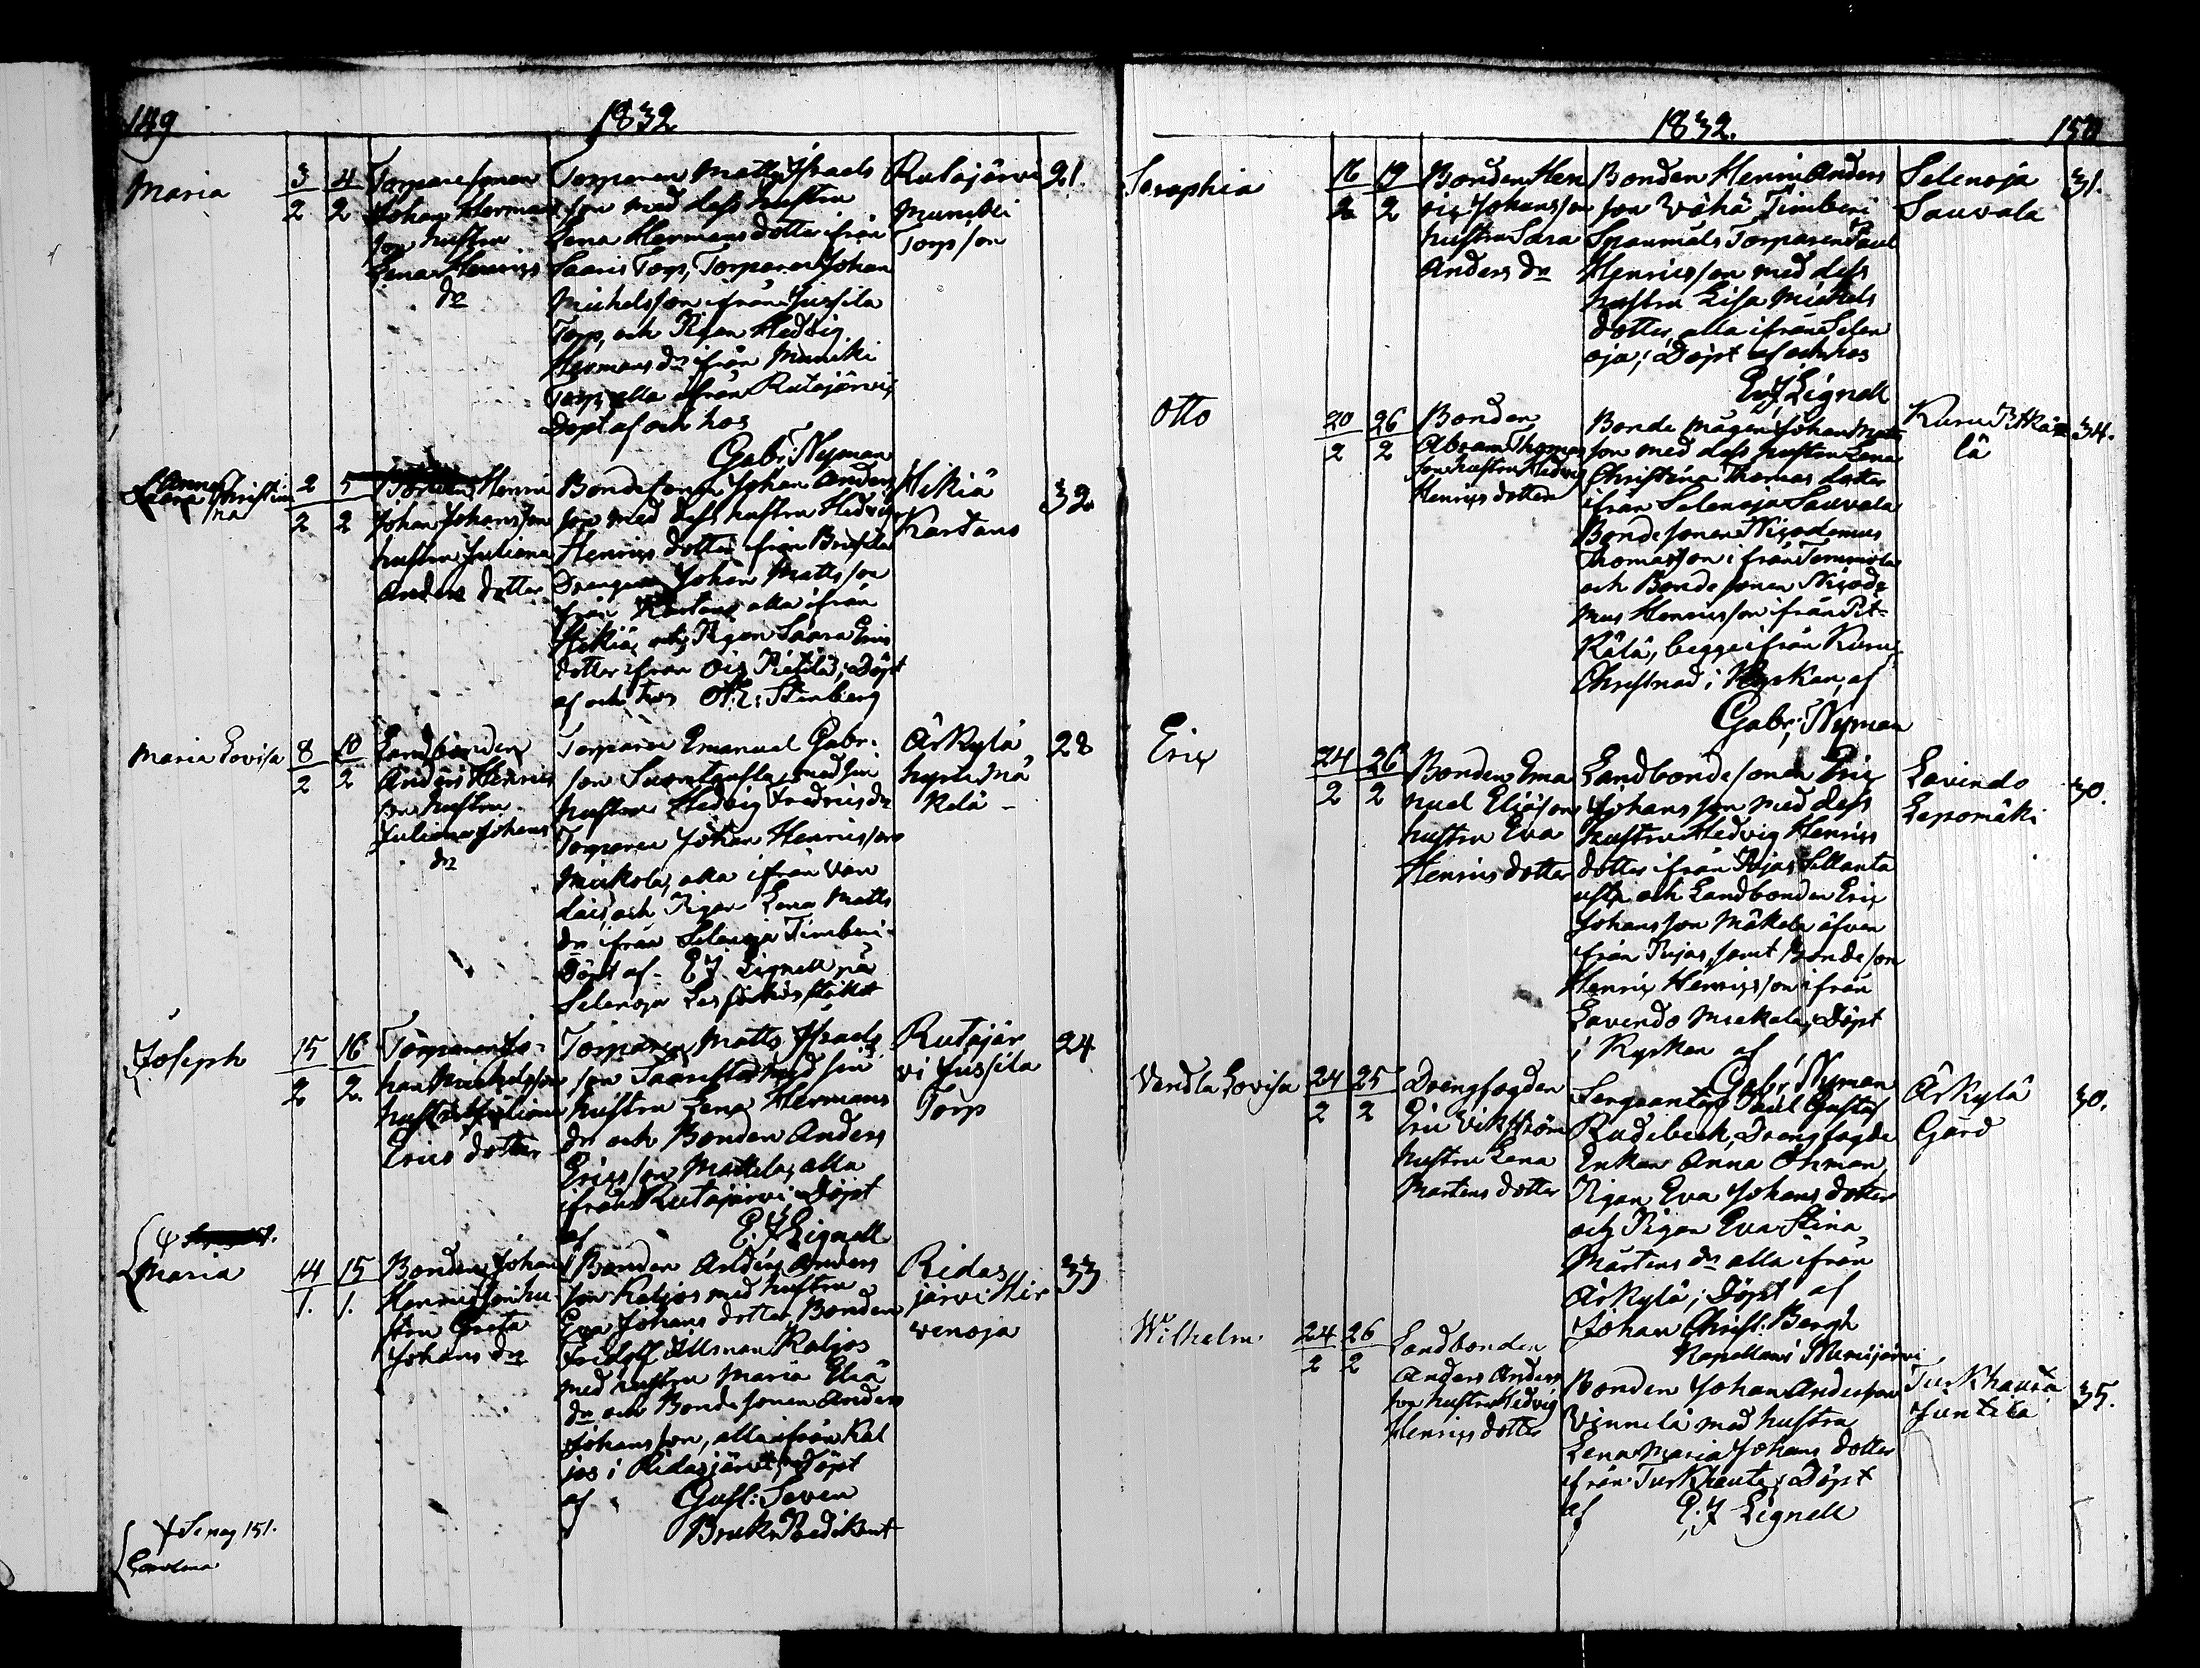 149
1832
Maria
3/2
4/2
Torparesonen
Johan Herman
son hustru
Lena Henrics
dr
Torparen Matts Israels
son med dess hustru
Lena Hermans dotter ifrån
Saaris Torp, Torparen Johan
Michelsson ifrån Jussila
Torp, och Pigan Hedvig
Hermans dr ifrån Muncki
Torp, alla ifrån Rutajärvi;
Döpt af och hos
Gabr: Nyman
Rutajärvi
Muncki
Torp son
21.
Anna
Christina
2/2
5/2
Henric
Johan Johansson
hustru Juliana
Anders dotter
Bondesonen Johan Anders
son med dess hustru Hedvig
Henrics dotter ifrån
Drengen Johan Matts son
från Kartano alla ifrån
Hikiä, och Pigan Saara Erics
dotter ifrån Ois Pietilä; Döpt
af och hos Stenberg
Hikiä
Kartano
32
Maria Lovisa
8/2
10/2
Landbonden
Anders Henrics
son hustru
Juliana Johans
dr
Torparen Emanuel Gabr:
son med sin
hustru Hedvig Fredrics dr
Torparen Johan Henricsson
Mickola, alla ifrån Van
dais, och Pigan Lena Matts
dr ifrån Selenoja Timberi
Döpt af E J Lignell på
Selenoja
Ärkylä
hyrism
kelä
28
Joseph
15/2
16/2
Torparen Jo-
han Michelsson
hustru Juliana
Erics dotter
Torparen Matts Israels
son med sin
hustru Lena Hermans
dr och Bonden Anders
Ericsson Mattila, alla
ifrån Rutajärvi Döpt
af E. J Lignell
Rutajär
vi Jussila
Torp
24
Maria
14/1.
15/1.
Bonden Johan
Henricsson hu-
stru Greta
Johans dr
Bonden Anders Anders
son Kaljos med hustru
Eva Johans dotter, Bonden
Fridolf Allsman Kaljos
med hustru Maria Eliä
dr och Bondesonen Anders
Johansson, alla ifrån Kal
jos i Ridasjärvi, Döpt
af Gust: Seven
Bruks Predikant
Ridas
järvi Hir
venoja
33
Se pag 151.
Carolina
1832.
150
Seraphia
16/2
19/2
Bonden Hen
ric Johansson
hustru Sara
Anders dr
Bonden Henric Anders
son Vähä Timberi
Spanmåls Torparen Paul
Henricsson med dess
hustru Lisa Michels
dotter, alla ifrån Selen
oja; Döpt af och hos
E J Lignell
Selenoja
Sauvala
31.
Otto
20/2
26/2
Bonden
Abram Thomas
son hustru Hedvig
Henrics dotter
Bonde mågen Johan Matts
son med dess hustru Lena
Christina Thomas dotter
ifrån Selenoja Sauvala
Bondesonen Nicodemus
Thomasson ifrån Tommola
och Bondesonen Nicode
mus Henricsson ifrån Pit-
kälä, begge ifrån Kuru;
Christnad i Kyrkan, af
Gabr: Nyman
Kuru Pitkä
lä
34.
Eric
24/2
26/2
Bonden Ema
nuel Eliäson
hustru Eva
Henrics dotter
Landbondesonen Eric
Johansson med dess
hustru Hedvig Henrics
dotter ifrån Pujas Sillanta
usta och Landbonden Eric
Johansson Mäkelä äfven
ifrån Pujas, samt Bondeson
Henric Henricsson ifrån
Lavindo Mickola, Döpt
i Kyrkan af
Gabr: Nyman
Lavindo
Lepomäki
30.
Vendla Lovisa
24/2
25/2
Drengfogden
Eric Vikström
hustru Lena
Martens dotter
Sergeanten Paul Gustaf
Rudebeck, Drengfogde
Enkan Anna Öhman,
Pigan Eva Johans dotter
och Pigan Eva Stina
Mårtens dr alla ifrån
Ärkylä; Döpt af
Johan Christ: Bergh
Kapellan i Nurmijärvi
Ärkylä
Gård
30.
Wilhelm
24/2
26/2
Landbonden
Anders Anders
son hustru Hedvig
Henrics dotter
Bonden Johan Andersson
Vinnilä med hustru
Lena Maria Johans dotter
ifrån Turkhauta; Döpt
af E. J Lignell
Turkhauta
Juntila
35.